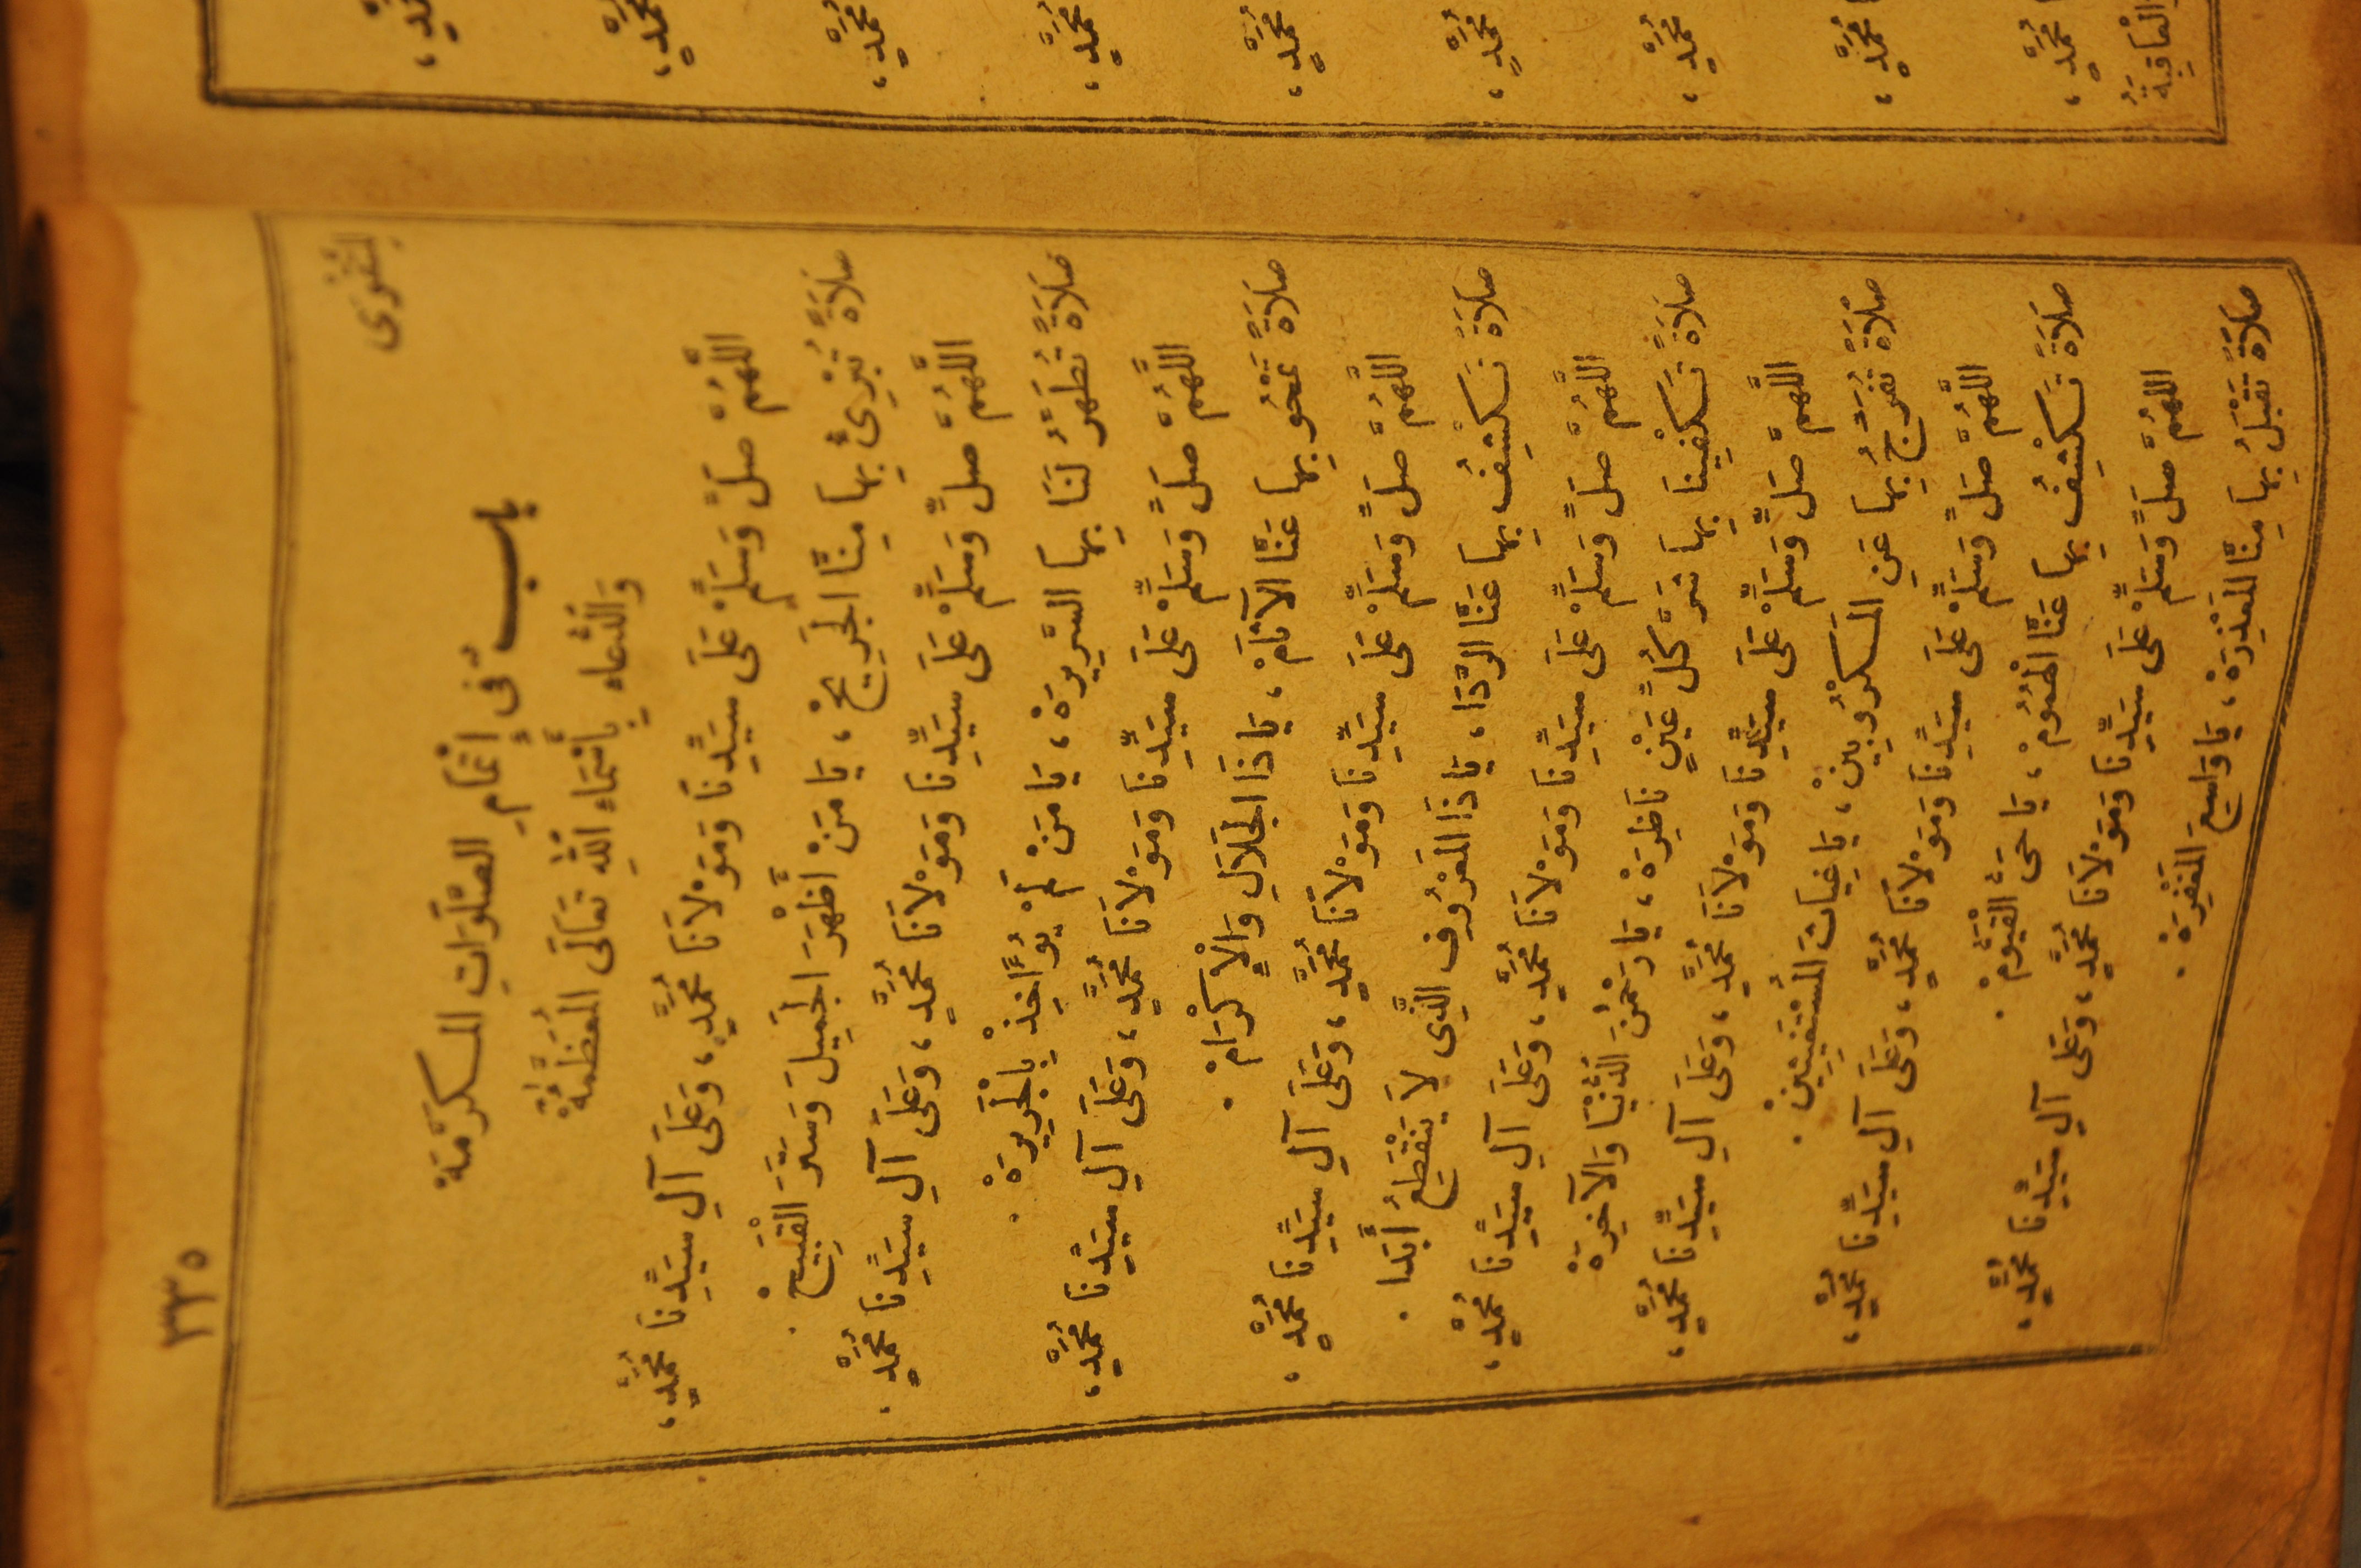 ٣٣٥
للتقوى
بَابٌ فِى إِتْمَامِ الصَّلَوَاتِ المُكَرَّمَة
وَالدُّعَاءِ بِأَسْمَاءِ اللهِ تَعَالَى المُعَظَّمَةْ
اللَّهُمَّ صَلِّ وَسَلِّمْ عَلَى سَيِّدِنَا وَمَوْلَانَا مُحَمَّدٍ، وَعَلَى آلِ سَيِّدِنَا مُحَمَّدٍ،
صَلَاةً تُبْرِئُ بِهَا مِنَّا الجَرِيحْ، يَا مَنْ أَظْهَرَ الجَمِيلَ وَسَتَرَ القَبِيحْ.
اللَّهُمَّ صَلِّ وَسَلِّمْ عَلَى سَيِّدِنَا وَمَوْلَانَا مُحَمَّدٍ، وَعَلَى آلِ سَيِّدِنَا مُحَمَّدٍ.
صَلَاةً تُطَهِّرُ لَنَا بِهَا السَّرِيرَةْ، يَا مَنْ لَمْ يُؤَاخِذْ بِالْجَرِيرَةْ.
اللَّهُمَّ صَلِّ وَسَلِّمْ عَلَى سَيِّدِنَا وَمَوْلَانَا مُحَمَّدٍ، وَعَلَى آلِ سَيِّدِنَا مُحَمَّدٍ،
صَلَاةً تَمْحُو بِهَا عَنَّا الآثَامْ، يَا ذَا الجَلَالِ وَالْإِكْرَامْ.
اللَّهُمَّ صَلِّ وَسَلِّمْ عَلَى سَيِّدِنَا وَمَوْلَانَا مُحَمَّدٍ، وَعَلَى آلِ سَيِّدِنَا مُحَمَّدٍ.
صَلَاةً تَكْشِفُ بِهَا عَنَّا الرَّدَا، يَا ذَا المَعْرُوفِ الَّذِى لَا يَنْقَطِعُ أَبَدَا.
اللَّهُمَّ صَلِّ وَسَلِّمْ عَلَى سَيِّدِنَا وَمَوْلَانَا مُحَمَّدٍ، وَعَلَى آلِ سَيِّدِنَا مُحَمَّدٍ،
صَلَاةً تَكْفِينَا بِهَا شَرَّ كُلِّ عَيْنٍ نَاظِرَةْ، يَا رَحْمٰنَ الدُّنْيَا وَالآخِرَةْ
اللَّهُمَّ صَلِّ وَسَلِّمْ عَلَى سَيِّدِنَا وَمَوْلَانَا مُحَمَّدٍ، وَعَلَى آلِ سَيِّدِنَا مُحَمَّدٍ،
صَلَاةً تُفَرِّجُ بِهَا عَنِ المَكْرُوبِينْ، يَا غِيَاثَ المُسْتَغِيثِينْ.
اللَّهُمَّ صَلِّ وَسَلِّمْ عَلَى سَيِّدِنَا وَمَوْلَانَا مُحَمَّدٍ، وَعَلَى آلِ سَيِّدِنَا مُحَمَّدٍ،
صَلَاةً تَكْشِفُ بِهَا عَنَّا الْهُمُومْ، يَا حَىُّ الْقَيُّومْ.
اللَّهُمَّ صَلِّ وَسَلِّمْ عَلَى سَيِّدِنَا وَمَوْلَانَا مُحَمَّدٍ، وَعَلَى آلِ سَيِّدِنَا مُحَمَّدٍ،
صَلَاةً تَقْبَلُ بِهَا مِنَّا المَعْذِرَةْ، يَا وَاسِعَ المَغْفِرَةْ.
مُحَمَّدٍ،
مُحَمَّدٍ،
مُحَمَّدٍ،
مُحَمَّدٍ،
مُحَمَّدٍ،
مُحَمَّدٍ،
مُحَمَّدٍ،
مُحَمَّدٍ،
العَاقِبَة